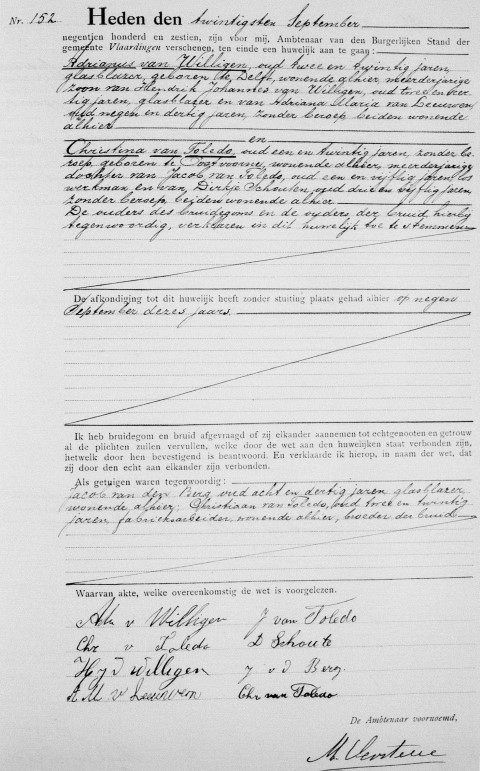 Nr. 152. Heden den twintigsten September
negentien honderd en zestien, zijn voor mij, Ambtenaar van den Burgerlijken Stand der
gemeente Vlaardingen verschenen, ten einde een huwelijk aan te gaan:
Adrianus van Willigen, oud twee en twintig jaren,
glasblazer, geboren te Delft, wonende alhier, meerderjarige
zoon van Hendrik Johannes van Willigen, oud twee en veer
tig jaren, glasblazer en van Adriana Maria van Leeuwen,
oud negen en dertig jaren, zonder beroep, beiden wonende
alhier
en
Christina van Toledo, oud een en twintig jaren, zonder be
roep, geboren te Oostvoorne, wonende alhier, meerderjarige
dochter van Jacob van Toledo, oud een en vijftig jaren, los
werkman en van Dirkje Schouten, oud drie en vijftig jaren,
zonder beroep, beiden wonende alhier.
De ouders des bruidegoms en de ouders der bruid hierbij
tegenwoordig, verklaren in dit huwelijk toe te stemmen.
De afkondiging tot dit huwelijk heeft zonder stuiting plaats gehad alhier op negen
September dezes jaars.
Ik heb bruidegom en bruid afgevraagd of zij elkander aannemen tot echtgenooten en getrouw
al de plichten zullen vervullen, welke door de wet aan den huwelijken staat verbonden zijn,
hetwelk door hen bevestigend is beantwoord. En verklaarde ik hierop, in naam der wet, dat
zij door den echt aan elkander zijn verbonden.
Als getuigen waren tegenwoordig:
Jacob van den Berg, oud acht en dertig jaren, glasblazer,
wonende alhier; Christiaan van Toledo, oud twee en twintig
jaren, fabrieksarbeider, wonende alhier, broeder der bruid
Waarvan akte, welke overeenkomstig de wet is voorgelezen.
Adr v Willigen J van Toledo
Chr v Toledo D Schoute
H J v Willigen J v d Berg
A M v Leeuwen Chr van Toledo
De Ambtenaar voornoemd,